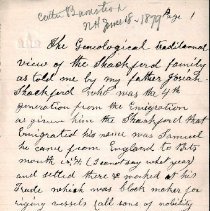 Page 1
N.H. June 8 - 1879
The Geneological Traditional
view of the Shackford family
as told me by my father Josiah
Shackford who was the 4th
generation from the Emigration
as given him the Shackford that
Emigrated his name was Samuel
he came from England to Ports
mouth N.H. (I cannot say what year)
and settled there & worked at his
Trade which was block maker for
riging vessels (all sons of nobility